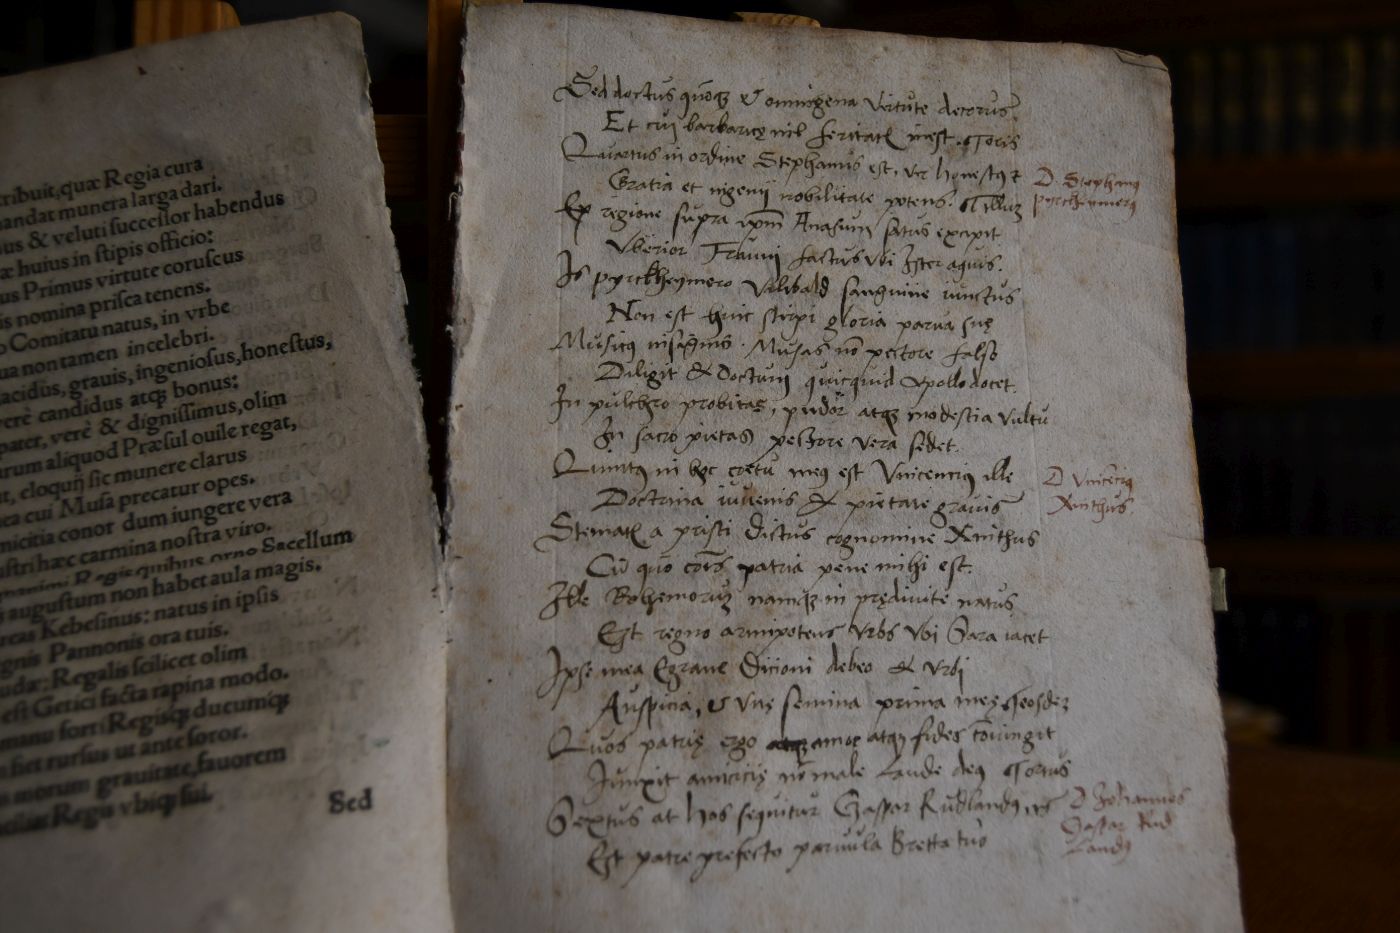 tribuit, quæ Regia cura
mandat munera larga dari.
us & veluti successor habendus
æ huius in stipis officio:
us Primus virtute coruscus
is nomina prisca tenens:
o Comitatu natus, in vrbe
ua non tamen incelebri.
lacidus, grauis, ingeniosus, honestus,
verè candidus atq; bonus:
pater, verè & dignissimus, olim
arum aliquod Præsul ouile regat,
eloquij sic munere clarus
ea cui Musa precatur opes.
micitia conor dum iungere vera
ustri hæc carmina nostra viro.
Regis quibus orno Sacellum
augustum non habet aula magis.
reas Kebelinus: natus in ipsis
ignis Pannonis ora tuis.
udæ: Regalis scilicet olim
est Getici facta rapina modo.
manu forti Regisq; ducumq;
fiet rursus ut ante soror.
morum grauitate, fauorem
Regis vbiq; sui.
Sed
Sed doctus quoq; & omnigena virtute decorus
Et cui barbaricę nil feritatis inest.
Quartus in ordine Stephanus est, vir honestus
Gratia et ingenij nobilitate potens.
Ex regione supra ipsum Anasum satus excipit
Vberior Trauni factus vbi Ister aquis.
Is pyrckheymero Vilibald sanguine iunctus
Non est huic stirpi gloria parua suę
Musicus insignis. Musas non pectore falso
Diligit & doctum quicquid Apollo docet.
In pulchro probitas, pudor atq; modestia vultu
In sacro pietas pectore vera sedet.
Quintus in hoc cętu meus est Vincencius ille
Doctrina iuuenis & pietate grauis
a prisci dictus cognomine Xinthus
Cum quo patria pene mihi est.
Ille Bohemorum namq; in prędiuite natus
Est regno armipotens vrbs vbi Sara iacet
Ipse mea Egranę Dicioni debeo & vrbi
Auspicia, & vitę semina prima meę
Quos patrię ergo amor atq; fides coniungit
Junxit amicitię non male Laude deus
Sextus at hos sequitur Gaspar Rudlandus,
Est patre prefecto paruula Bretta tuo
D Stephanus
pyrckheymerus
D Vincencius
Xinthus.
D Johannes
Gaspar Rud
Landus